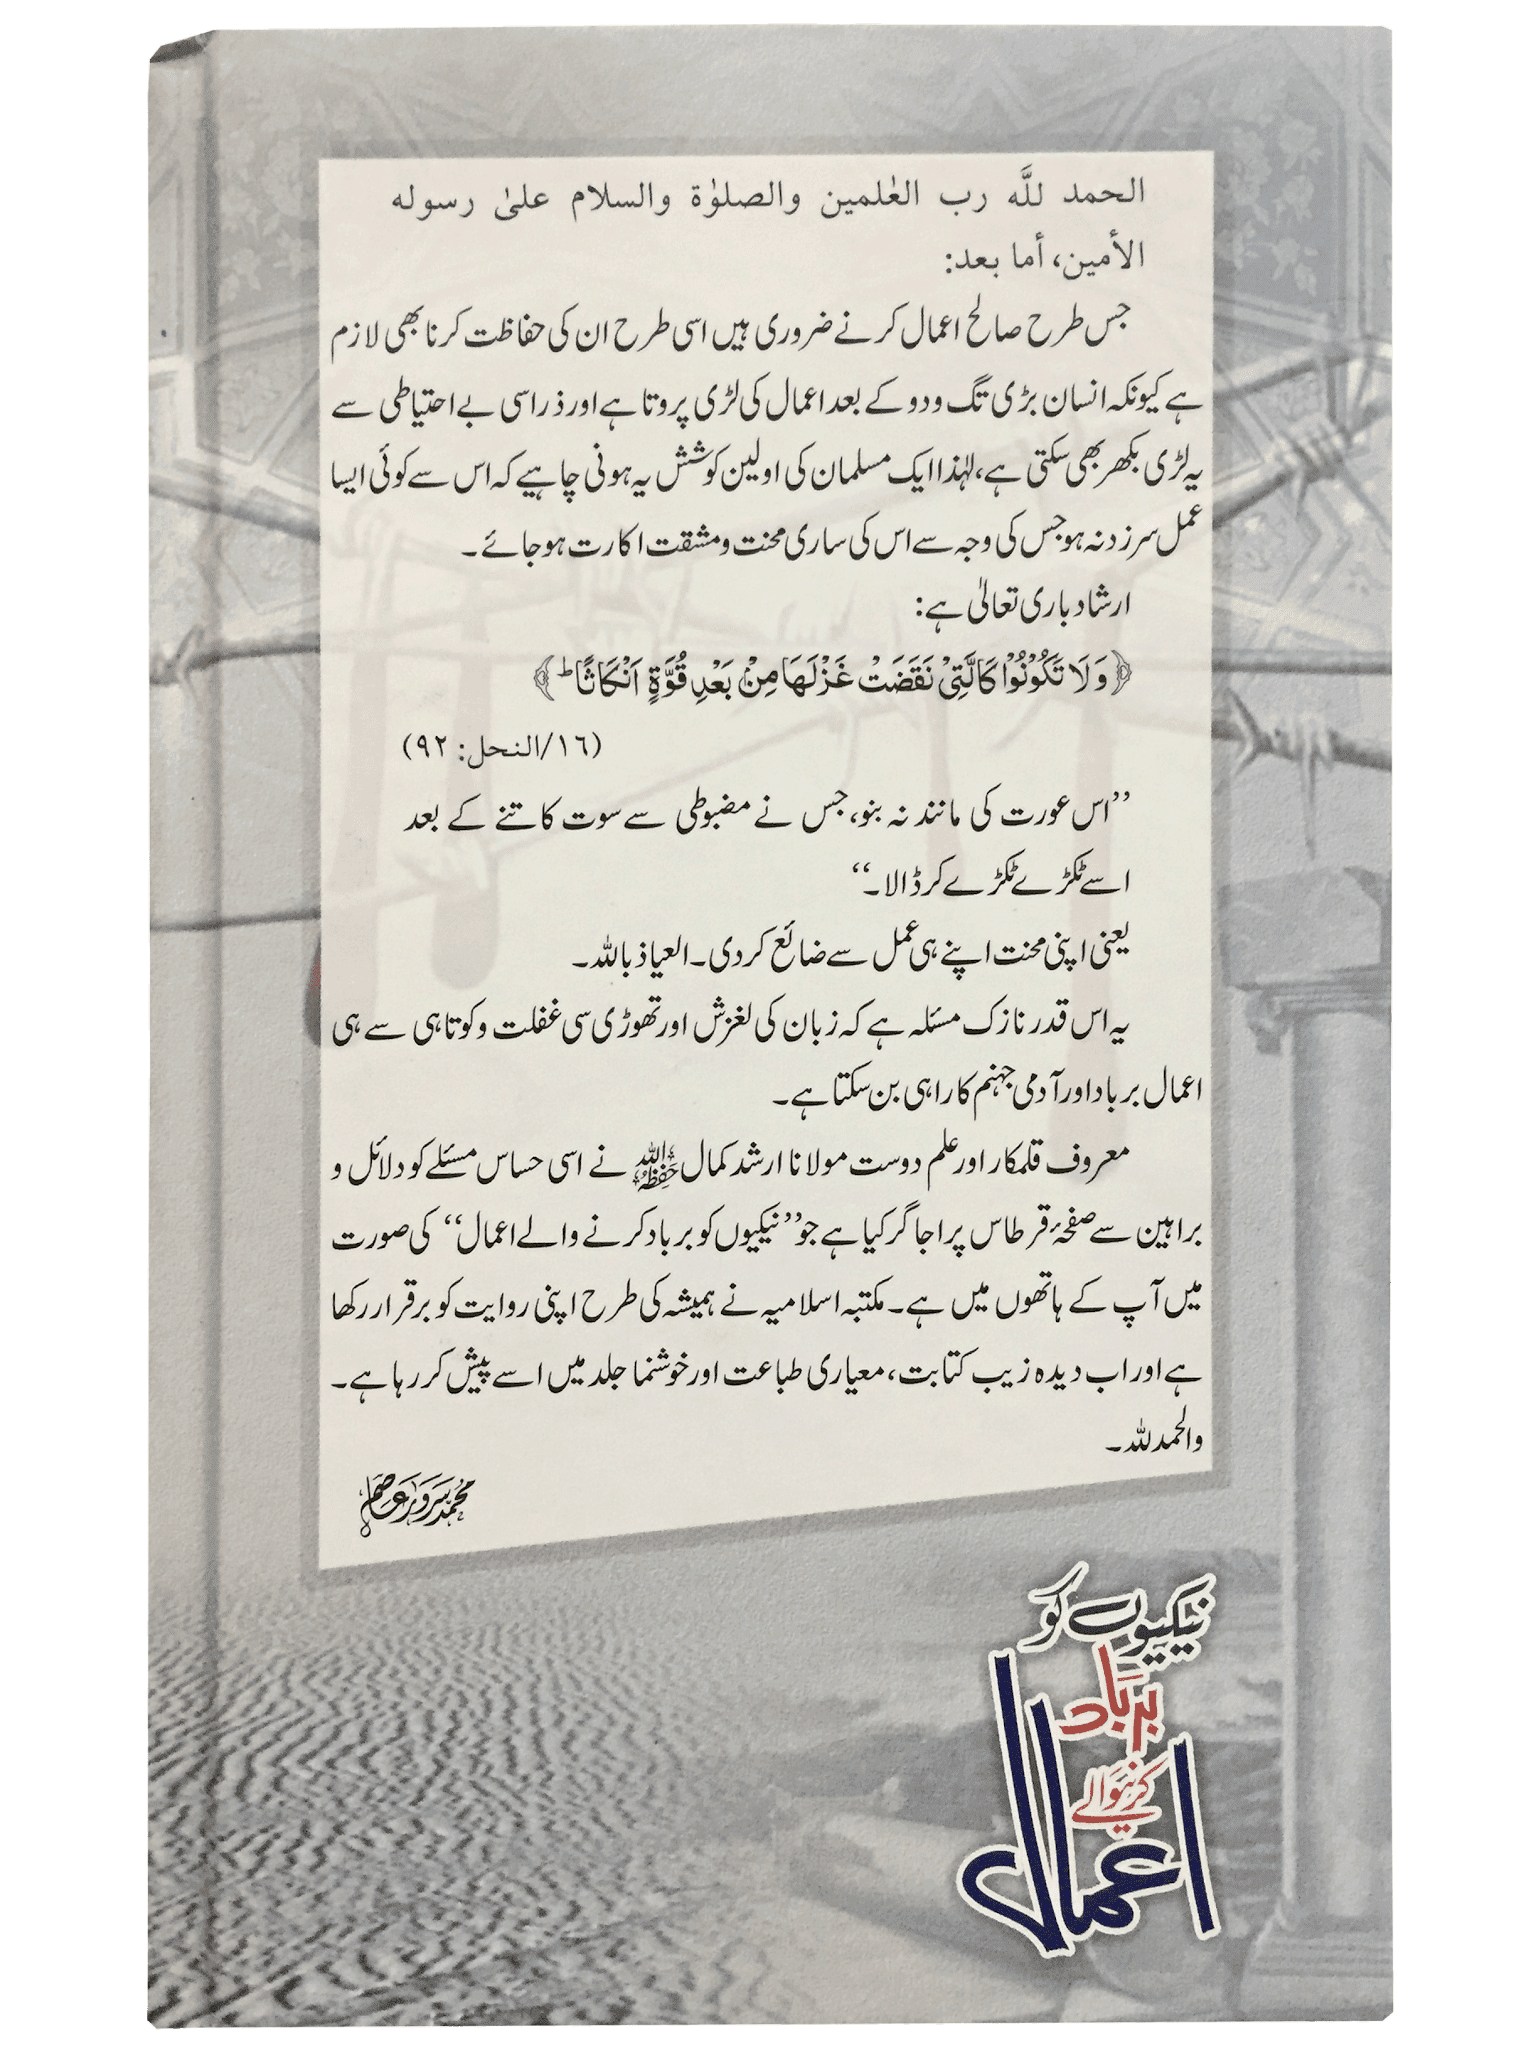 الحمد للَّه رب العٰلمين والصلوٰة والسلام علىٰ رسوله
الأمين، أما بعد:
جس طرح صالح اعمال کرنے ضروری ہیں اسی طرح ان کی حفاظت کرنا بھی لازم
ہے کیونکہ انسان بڑی تگ ودو کے بعد اعمال کی لڑی پروتا ہے اور ذراسی بے احتیاطی سے
یہ لڑی بکھر بھی سکتی ہے، لہٰذا ایک مسلمان کی اولین کوشش یہ ہونی چاہیے کہ اس سے کوئی ایسا
عمل سرزد نہ ہو جس کی وجہ سے اس کی ساری محنت ومشقت اکارت ہوجائے۔
ارشاد باری تعالیٰ ہے:
﴿وَلَا تَكُوْنُوْا كَالَّتِيْ نَقَضَتْ غَزْلَهَا مِنْۢ بَعْدِ قُوَّةٍ اَنْكَاثًا ؕ﴾
(١٦/النحل: ٩٢)
’’اس عورت کی مانند نہ بنو، جس نے مضبوطی سے سوت کاتنے کے بعد
اسے ٹکڑے ٹکڑے کر ڈالا۔‘‘
یعنی اپنی محنت اپنے ہی عمل سے ضائع کردی۔ العیاذ باللہ۔
یہ اس قدر نازک مسئلہ ہے کہ زبان کی لغزش اور تھوڑی سی غفلت وکوتاہی سے ہی
اعمال برباد اور آدمی جہنم کا راہی بن سکتا ہے۔
معروف قلمکار اور علم دوست مولانا ارشد کمال حفظہ اللہ نے اسی حساس مسئلے کو دلائل و
براہین سے صفحۂ قرطاس پر اجاگر کیا ہے جو ’’نیکیوں کو برباد کرنے والے اعمال‘‘ کی صورت
میں آپ کے ہاتھوں میں ہے۔ مکتبہ اسلامیہ نے ہمیشہ کی طرح اپنی روایت کو برقرار رکھا
ہے اور اب دیدہ زیب کتابت، معیاری طباعت اور خوشنما جلد میں اسے پیش کر رہا ہے۔
والحمدللہ۔
محمد سرور عاصم
نیکیوں کو
برباد
کرنیوالے
اعمال